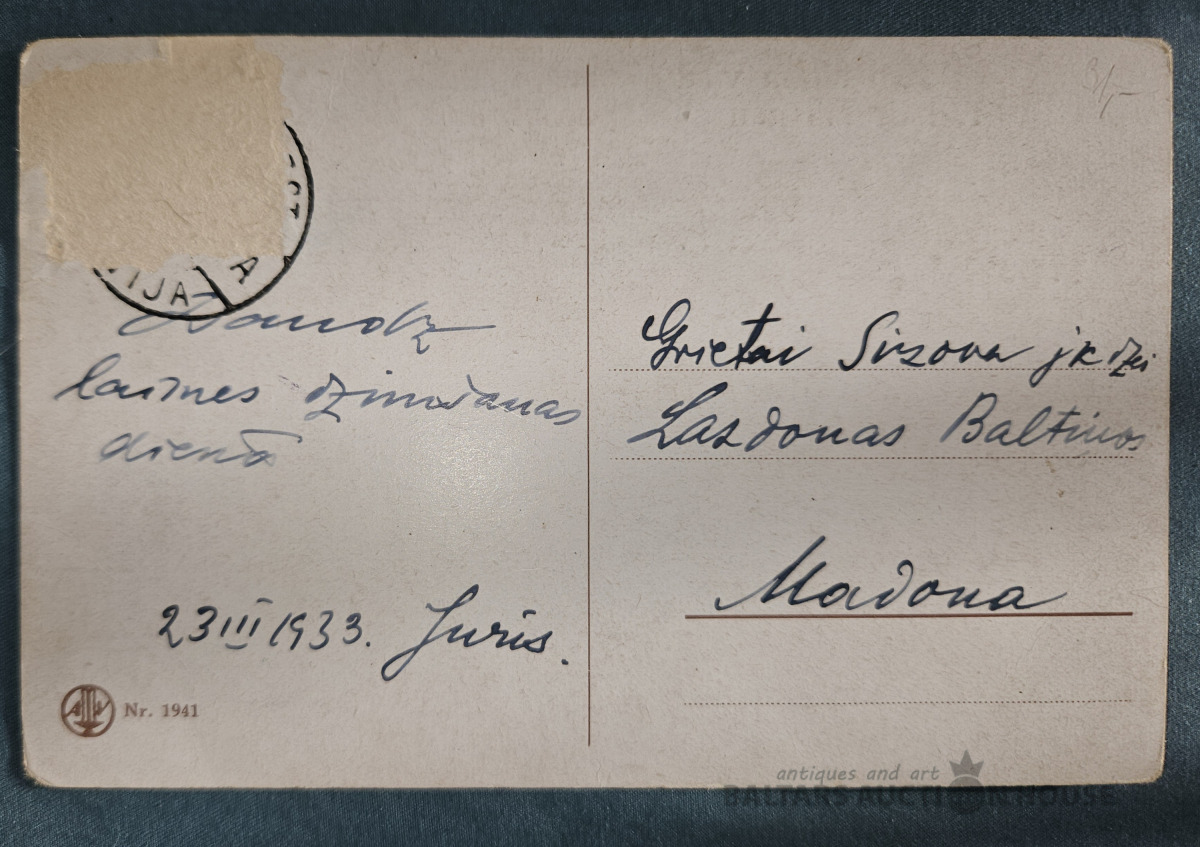 VIJA
A
Daudz
laimes dzimšanas
dienā
23 III 1933. Juris.
Nr. 1941
3/,-
Grietai Sirzova jkdzei
Lazdonas Baltiņos
Madona
antiques and art
BALTARS AUCTION HOUSE